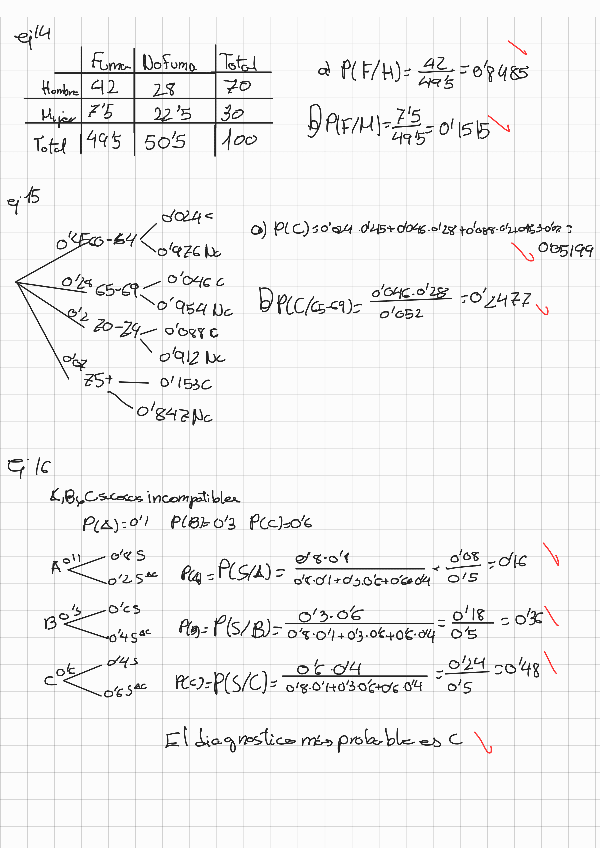 ej 14
Fuma No Fuma Total
Hombre 42 28 70
Mujer 7'5 22'5 30
Total 49'5 50'5 100
a) P(F/H) = 42/49'5 = 0'8485
b) P(F/M) = 7'5/49'5 = 0'1515
ej 15
0'45 60-64
0'024 C
0'976 NC
0'28 65-69
0'046 C
0'954 NC
0'2 70-74
0'088 C
0'912 NC
0'07 75+
0'153 C
0'847 NC
a) P(C) = 0'024 · 0'45 + 0'046 · 0'28 + 0'088 · 0'2 + 0'153 · 0'07 =
0'05199
b) P(C/65-69) = 0'046 · 0'28 / 0'052 = 0'2477
Ej 16
A, B y C sucesos incompatibles
P(A) = 0'1 P(B) = 0'3 P(C) = 0'6
A 0'1
0'8 S
0'2 S
P(A) = P(S/A) = 0'8 · 0'1 / 0'8 · 0'1 + 0'3 · 0'6 + 0'6 · 0'4 = 0'08/0'5 = 0'16
B 0'3
0'6 S
0'4 S
P(B) = P(S/B) = 0'3 · 0'6 / 0'8 · 0'1 + 0'3 · 0'6 + 0'6 · 0'4 = 0'18/0'5 = 0'36
C 0'6
0'4 S
0'6 S
P(C) = P(S/C) = 0'6 · 0'4 / 0'8 · 0'1 + 0'3 · 0'6 + 0'6 · 0'4 = 0'24/0'5 = 0'48
El diagnostico más probable es C